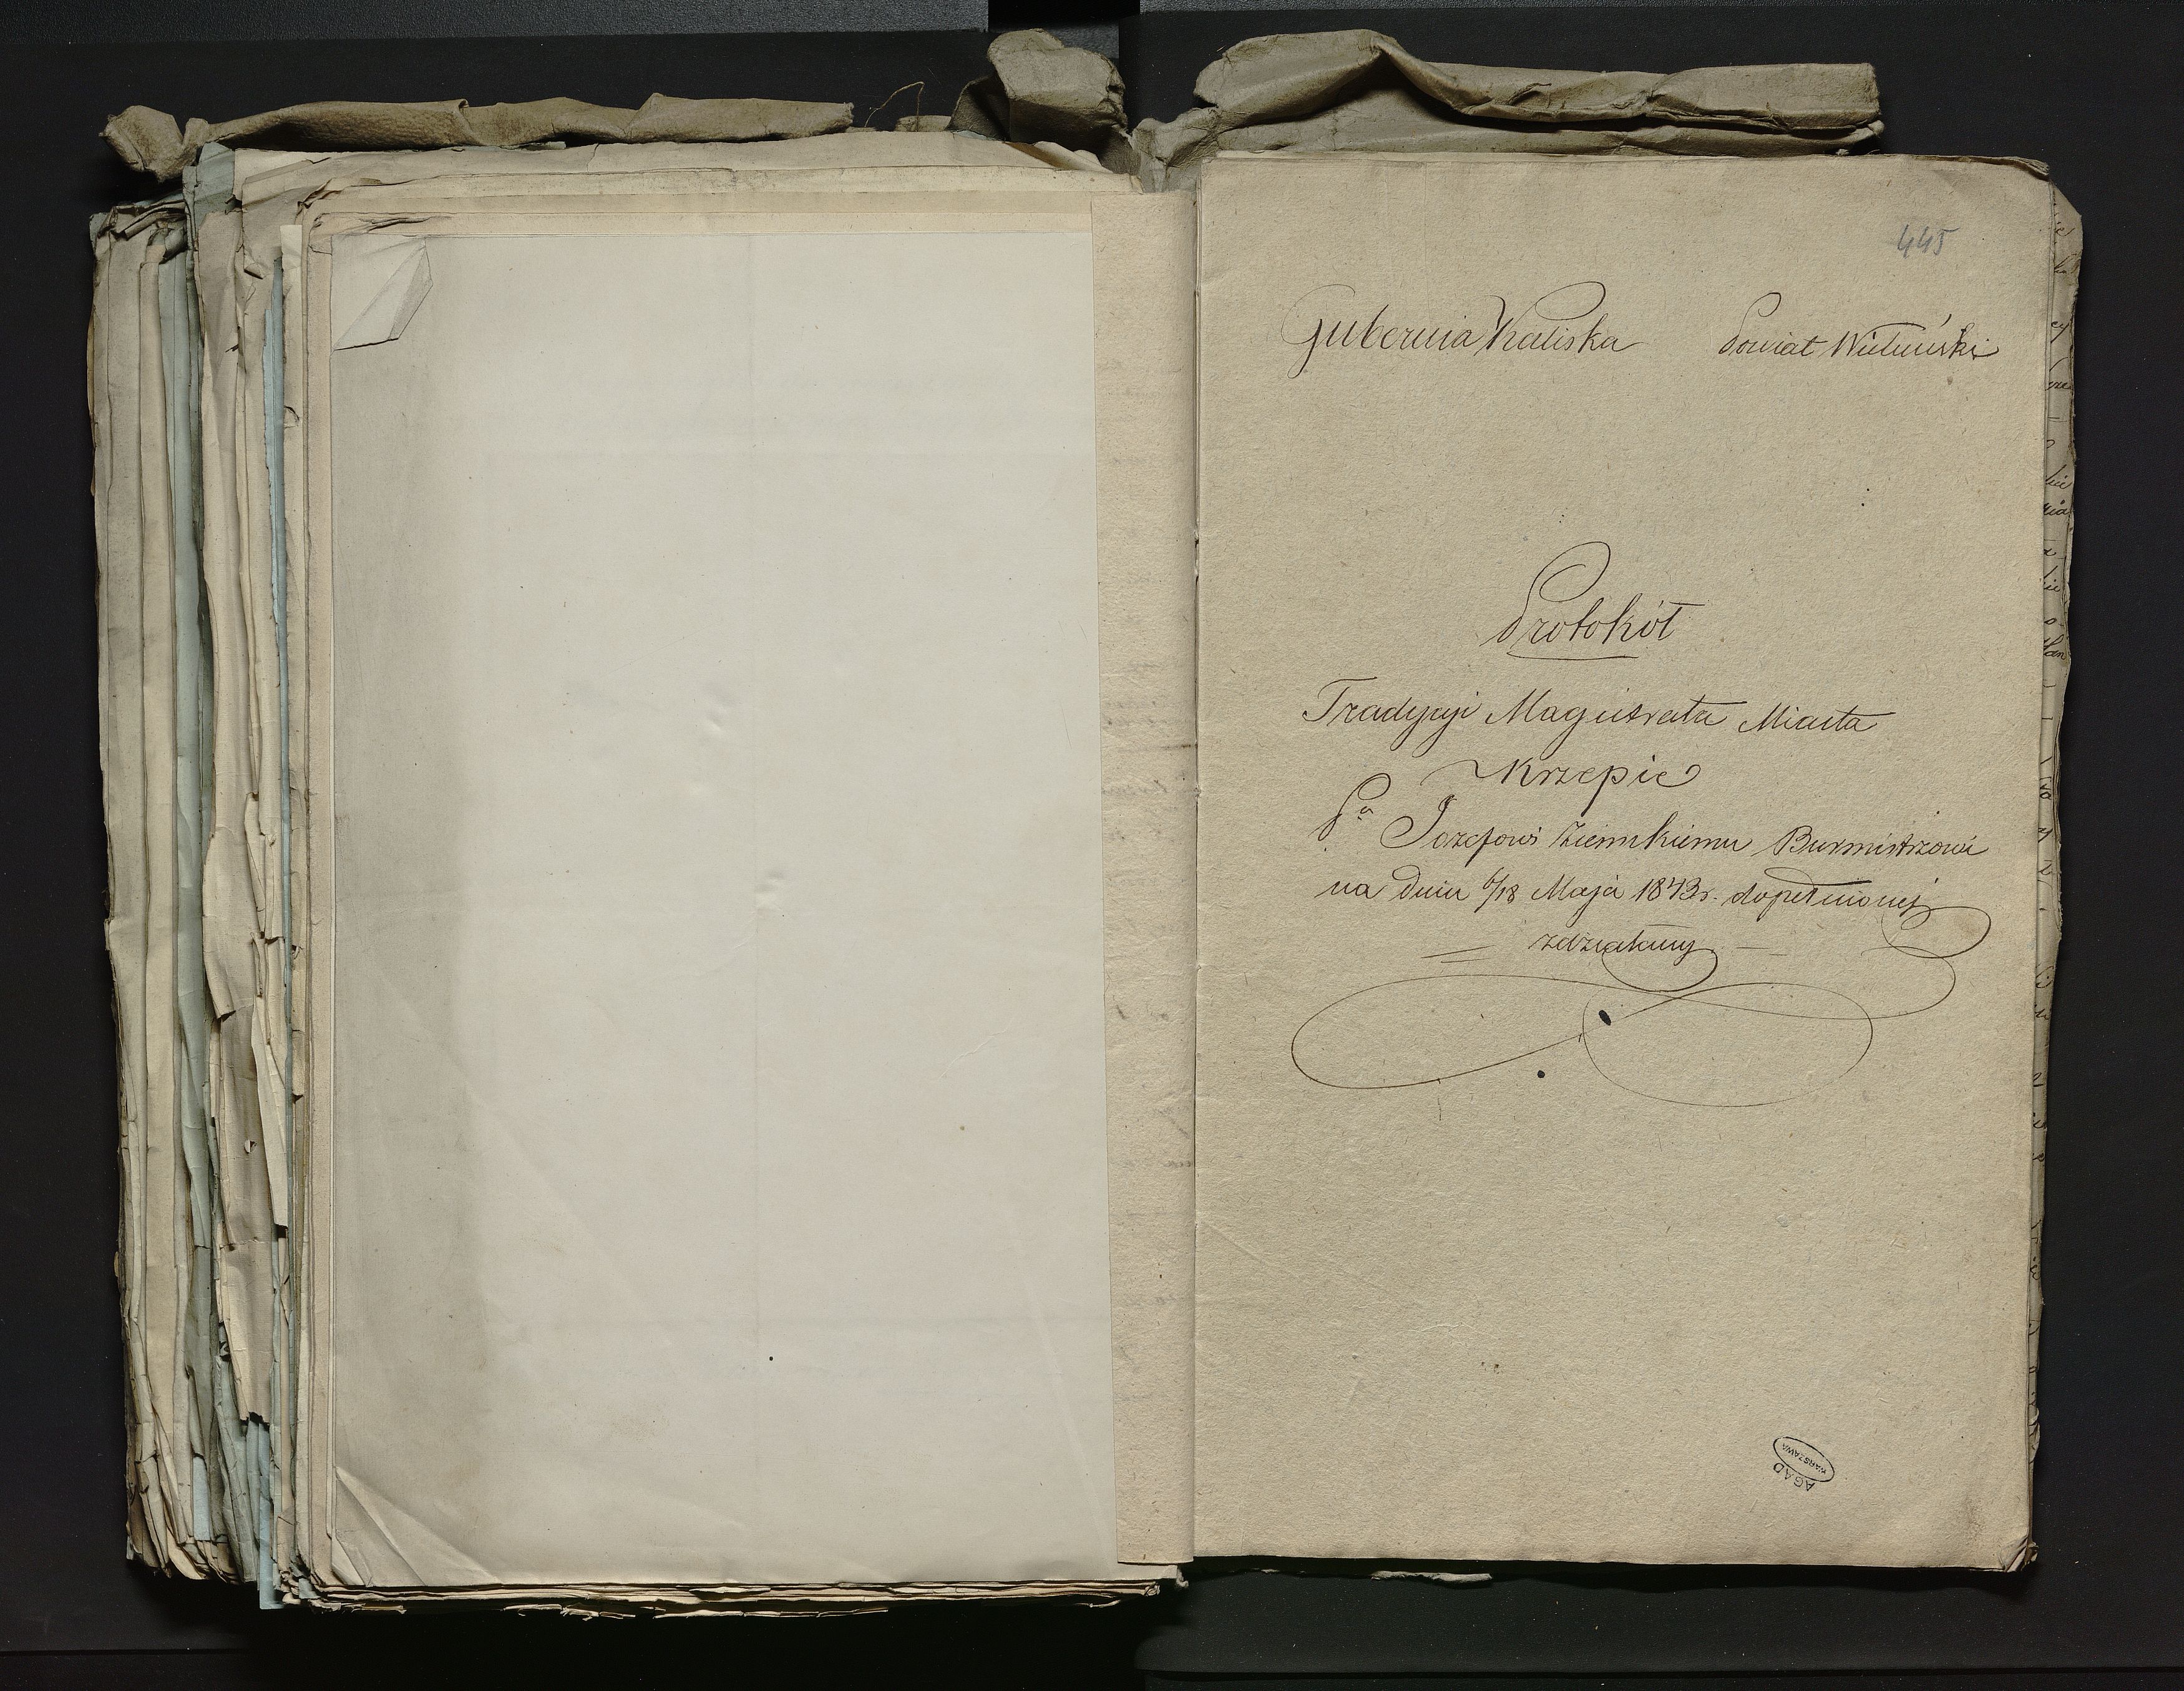 445
Gubernia Kaliska Powiat Wieluński
Protokół
Tradycyi Magistratu Miasta
Krzepic
Pu Józefowi Ziemskiemu Burmistrzowi
na dniu 6/18 Maja 1843r. dopełnionej
zdziałany
AGAD
WARSZAWA